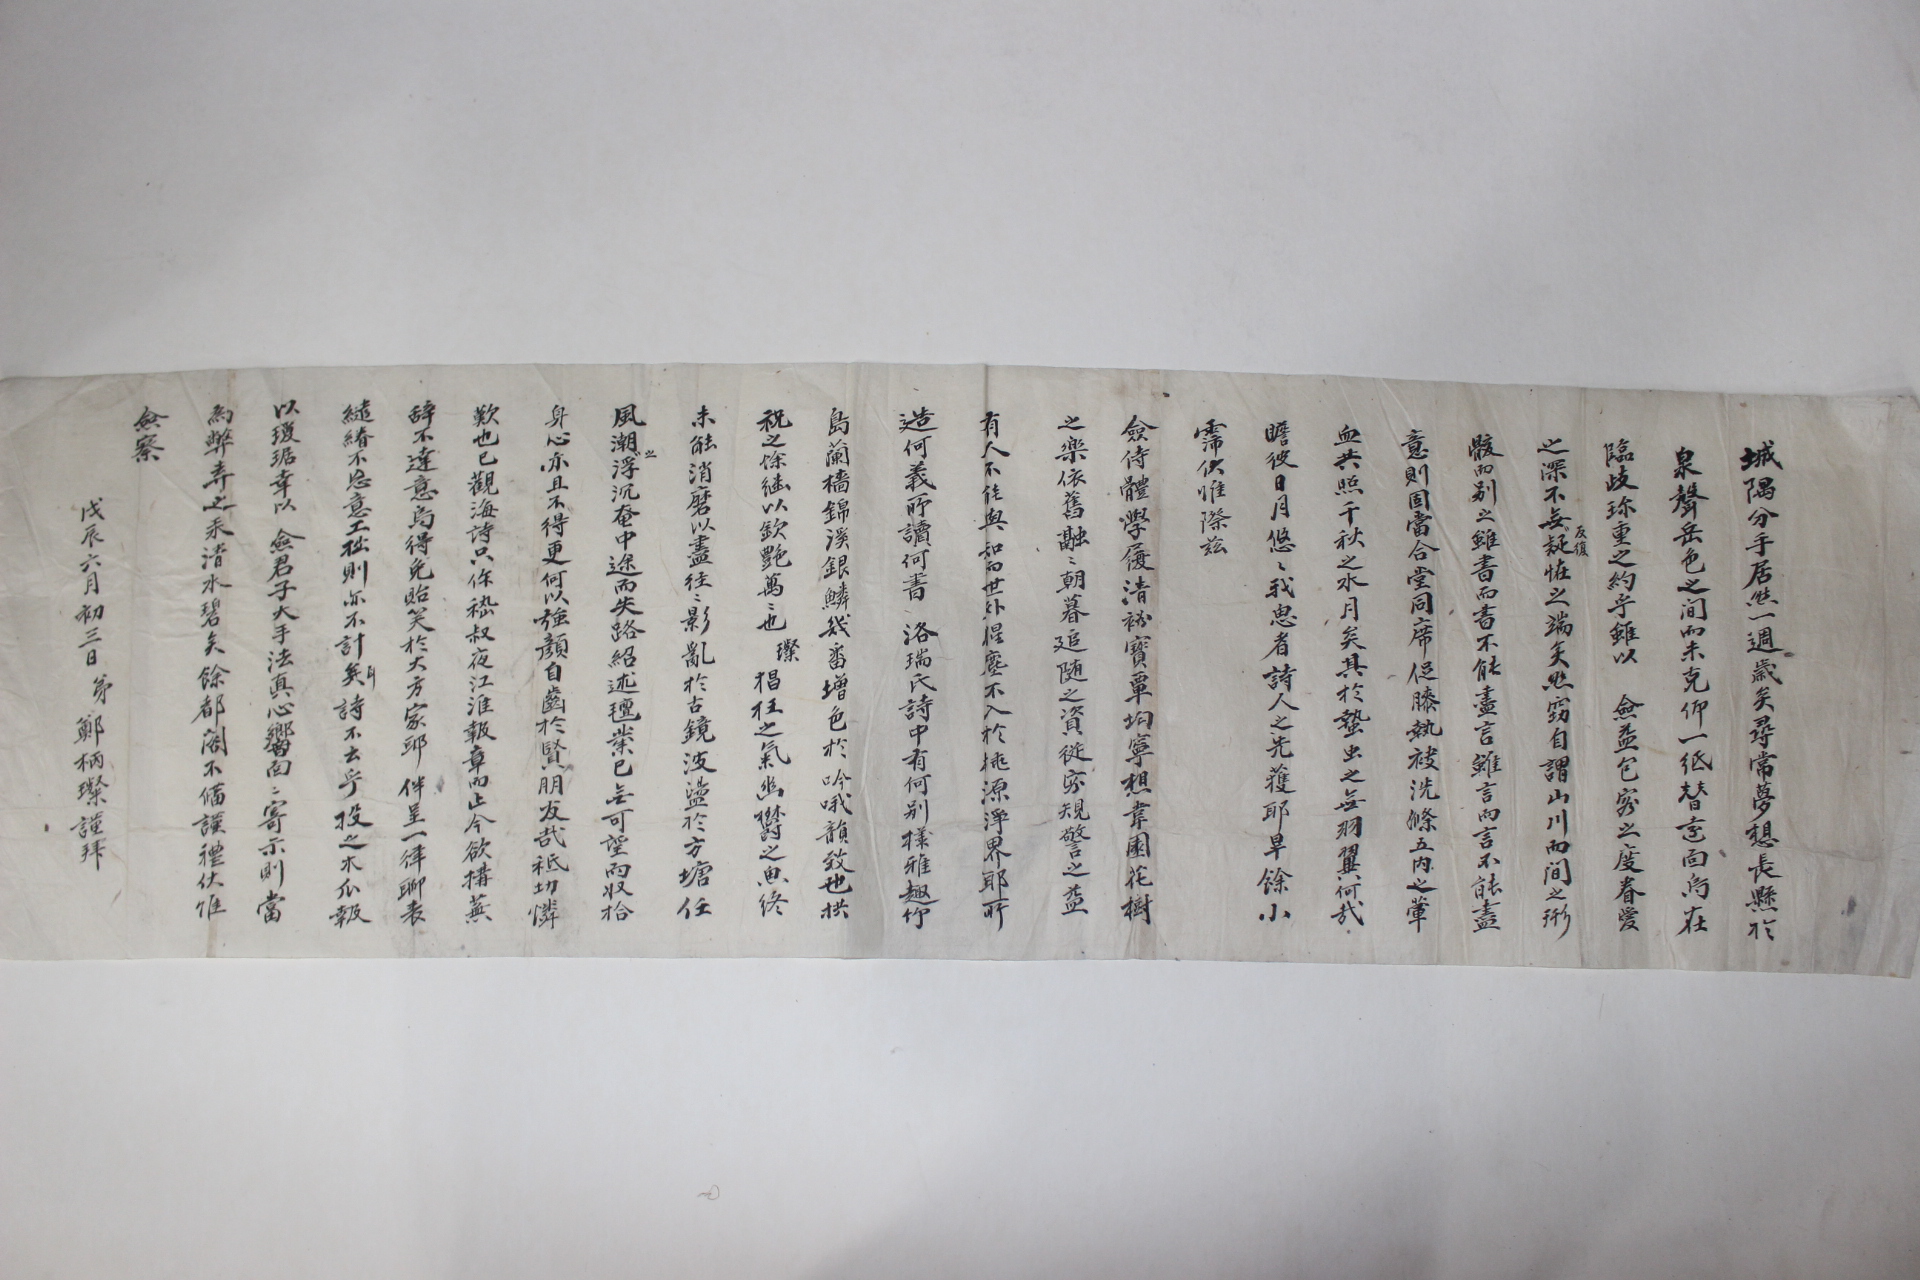 城隅分手居然一週歲矣尋常夢想長懸於
泉聲岳色之間而未克仰一紙替壹向烏在
臨歧珍重之約乎雖以 僉益包容之度眷愛
之深不無反復疑恠之端矣然竊自謂山川而間之形
骸而別之雖書而書不能盡言雖言而言不能盡
意則固當合堂同席促膝執袂洗滌五內之葷
血共照千秋之水月矣其於蟄虫之無羽翼何哉
瞻彼日月悠〻我思者詩人之先獲耶旱餘小
霈伏惟際茲
僉侍體學履清裕寶覃均寧想韋園花樹
之樂依舊融〻朝暮追隨之資從容規警之益
有人不能與知而世外腥塵不入於桃源淨界耶所
造何義所讀何書 洛瑞氏詩中有何別樣雅趣竹
島蘭檣錦溪銀鱗幾番增色於吟哦韻致也拱
祝之餘繼以欽艷萬〻也 璨 猖狂之氣幽鬱之思終
未能消磨以盡往〻影亂於古鏡波盪於方塘任
風潮之浮沉奄中途而失路紹述氊業已無可望而收拾
身心亦且不得更何以強顏自齒於賢朋友哉秪切憐
歎也已觀海詩只依嵇叔夜江淮報章而止今欲搆蕪
辭不達意烏得免貽笑於大方家耶 伴呈一律聊表
繾綣不忘意工拙則亦不計矣耳詩不云乎投之木瓜報
以瓊琚幸以 僉君子大手法真心響面〻寄示則當
為弊弆之美清水碧矣餘都閣不備謹禮伏惟
僉察
戊辰六月初三日弟鄭柄璨謹拜